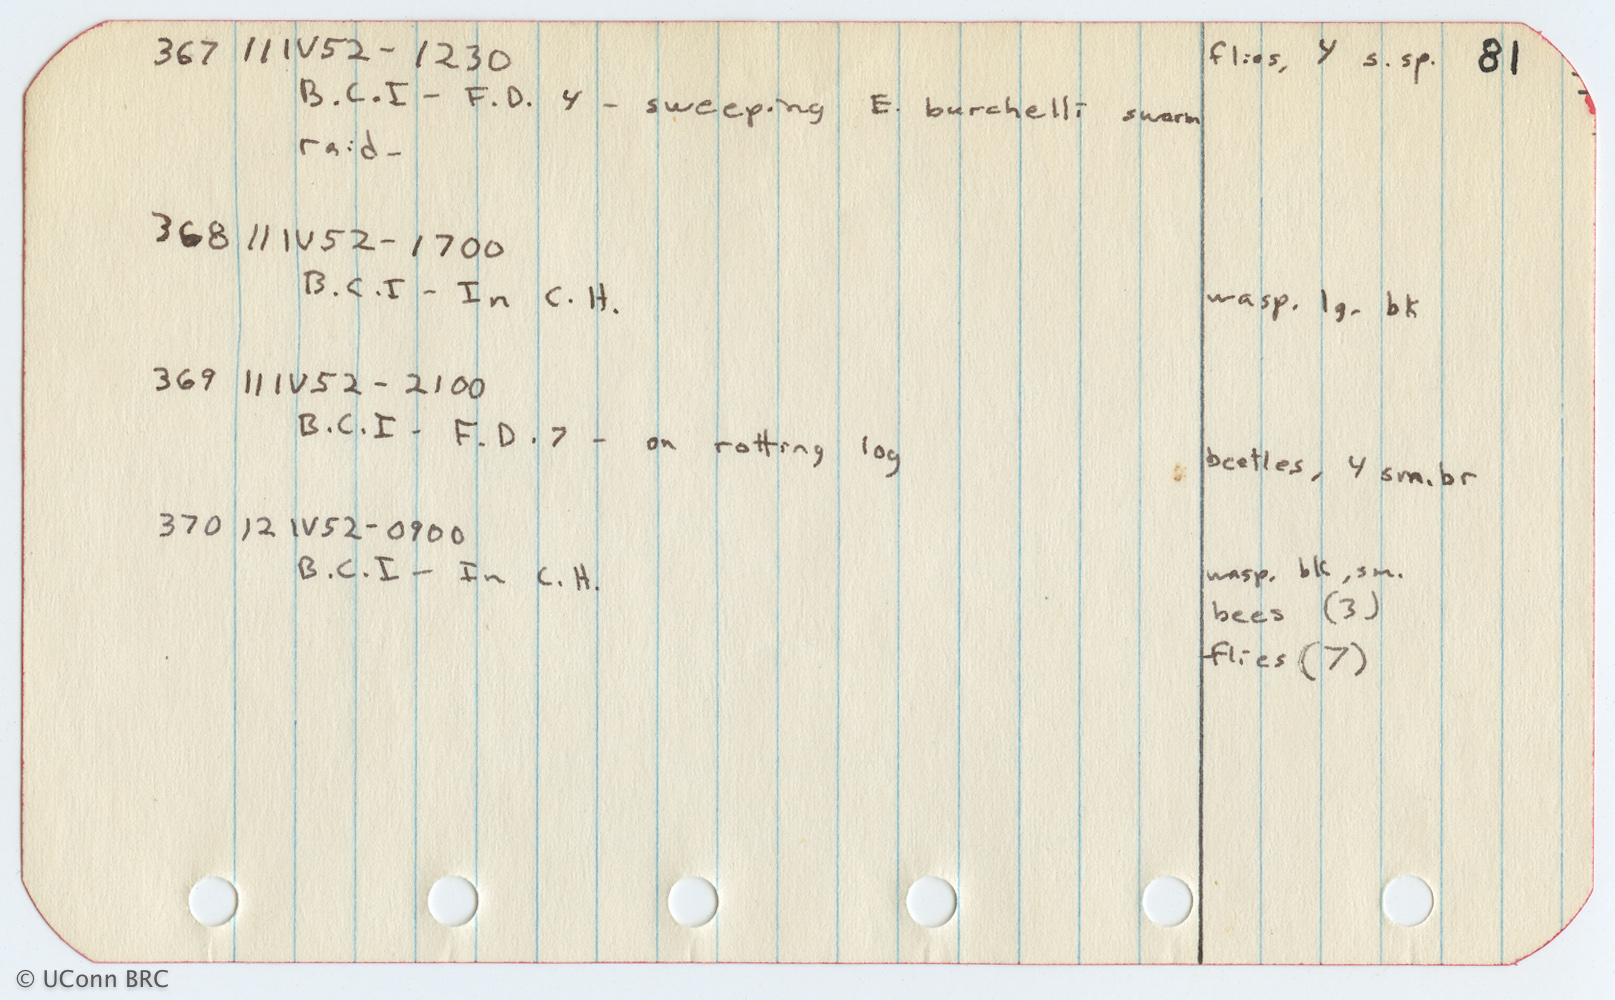 367 11 IV 52 - 1230
flies, 4 s. sp. 81
B.C.I - F.D. 4 - sweeping E. burchelli swarm
raid -
368 11 IV 52 - 1700
B.C.I - In C.H.
wasp. lg. bk
369 11 IV 52 - 2100
B.C.I - F.D. 7 - on rotting log
beetles, 4 sm. br
370 12 IV 52 - 0900
B.C.I - In C.H.
wasp. bk, sm.
bees (3)
flies (7)
© UConn BRC